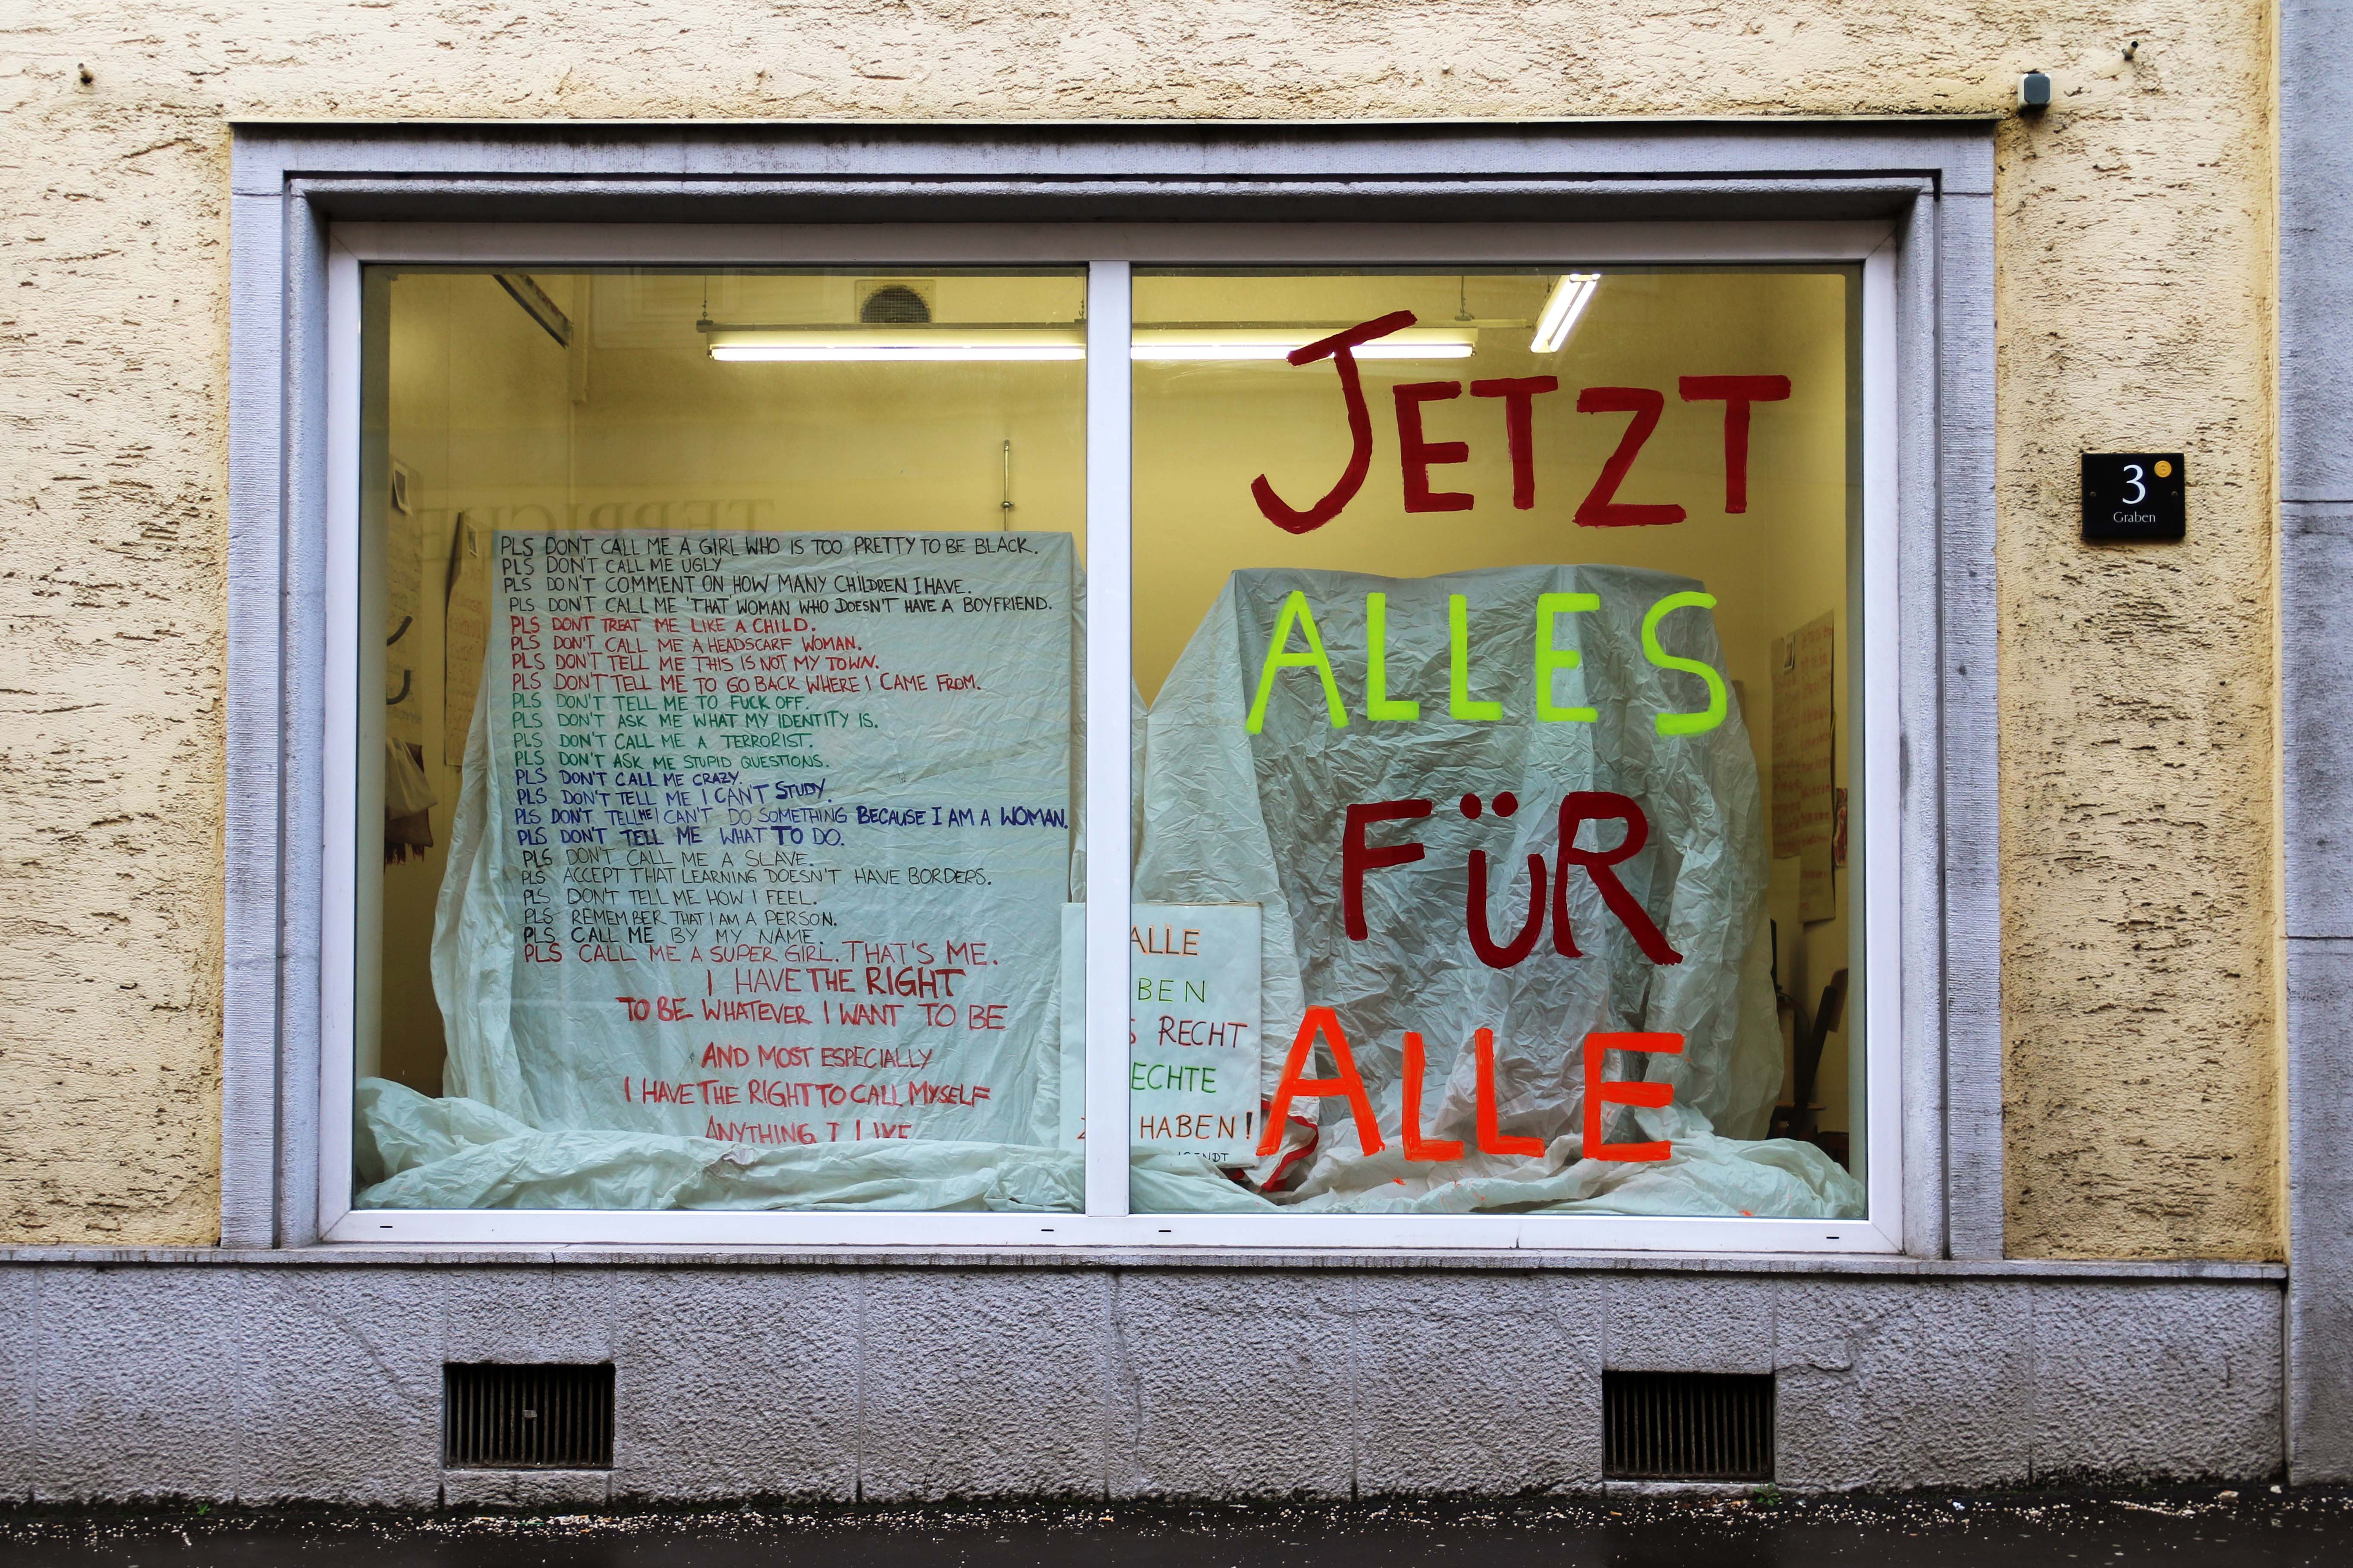 PLS DON'T CALL ME A GIRL WHO IS TOO PRETTY TO BE BLACK.
PLS DON'T CALL ME UGLY
PLS DON'T COMMENT ON HOW MANY CHILDREN I HAVE.
PLS DON'T CALL ME 'THAT WOMAN WHO DOESN'T HAVE A BOYFRIEND.
PLS DON'T TREAT ME LIKE A CHILD.
PLS DON'T CALL ME A HEADSCARF WOMAN.
PLS DON'T TELL ME THIS IS NOT MY TOWN.
PLS DON'T TELL ME TO GO BACK WHERE I CAME FROM.
PLS DON'T TELL ME TO FUCK OFF.
PLS DON'T ASK ME WHAT MY IDENTITY IS.
PLS DON'T CALL ME A TERRORIST.
PLS DON'T ASK ME STUPID QUESTIONS.
PLS DON'T CALL ME CRAZY.
PLS DON'T TELL ME I CAN'T STUDY.
PLS DON'T TELL ME I CAN'T DO SOMETHING BECAUSE I AM A WOMAN.
PLS DON'T TELL ME WHAT TO DO.
PLS DON'T CALL ME A SLAVE.
PLS ACCEPT THAT LEARNING DOESN'T HAVE BORDERS.
PLS DON'T TELL ME HOW I FEEL.
PLS REMEMBER THAT I AM A PERSON.
PLS CALL ME BY MY NAME.
PLS CALL ME A SUPER GIRL. THAT'S ME.
I HAVE THE RIGHT
TO BE WHATEVER I WANT TO BE
AND MOST ESPECIALLY
I HAVE THE RIGHT TO CALL MYSELF
ANYTHING I LIKE
ALLE
BEN
S RECHT
ECHTE
Z HABEN!
JETZT
ALLES
FÜR
ALLE
3
Graben